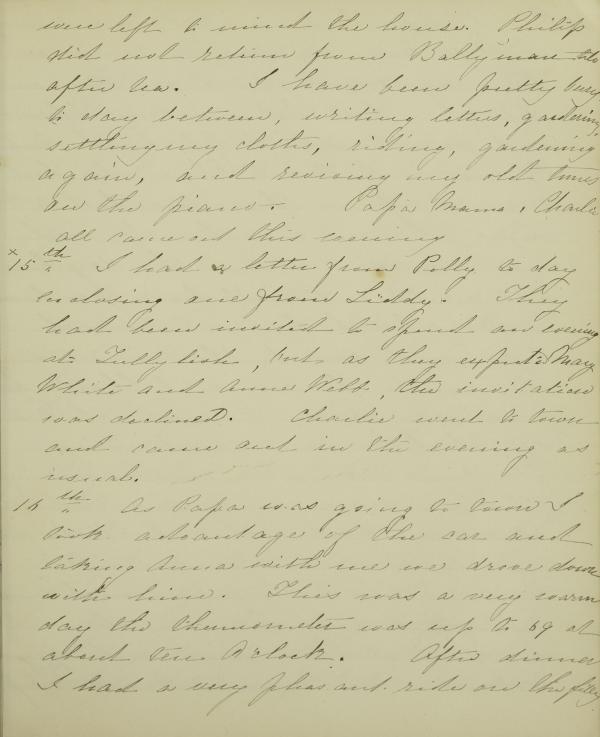 were left to mind the house. Philip
did not return from Ballyman till
after tea. I have been pretty busy
to day between, writing letters, gardening,
settling my cloths, riding, gardening
again, and revising my old tunes
on the piano. Papa Mama & Charlie
all came out this evening
x 15th I had a letter from Polly to day
enclosing one from Liddy. They
had been invited to spend an evening
at Tullylish, but as they expected Mary
White and Anne Webb, the invitation
was declined. Charlie went to town
and came out in the evening as
usual.
16th As Papa was going to town I
took advantage of the car and
taking Anna with me we drove down
with him. This was a very warm
day the thermometer was up to 69 at
about ten O'clock. After dinner
I had a very pleasant ride on the filly